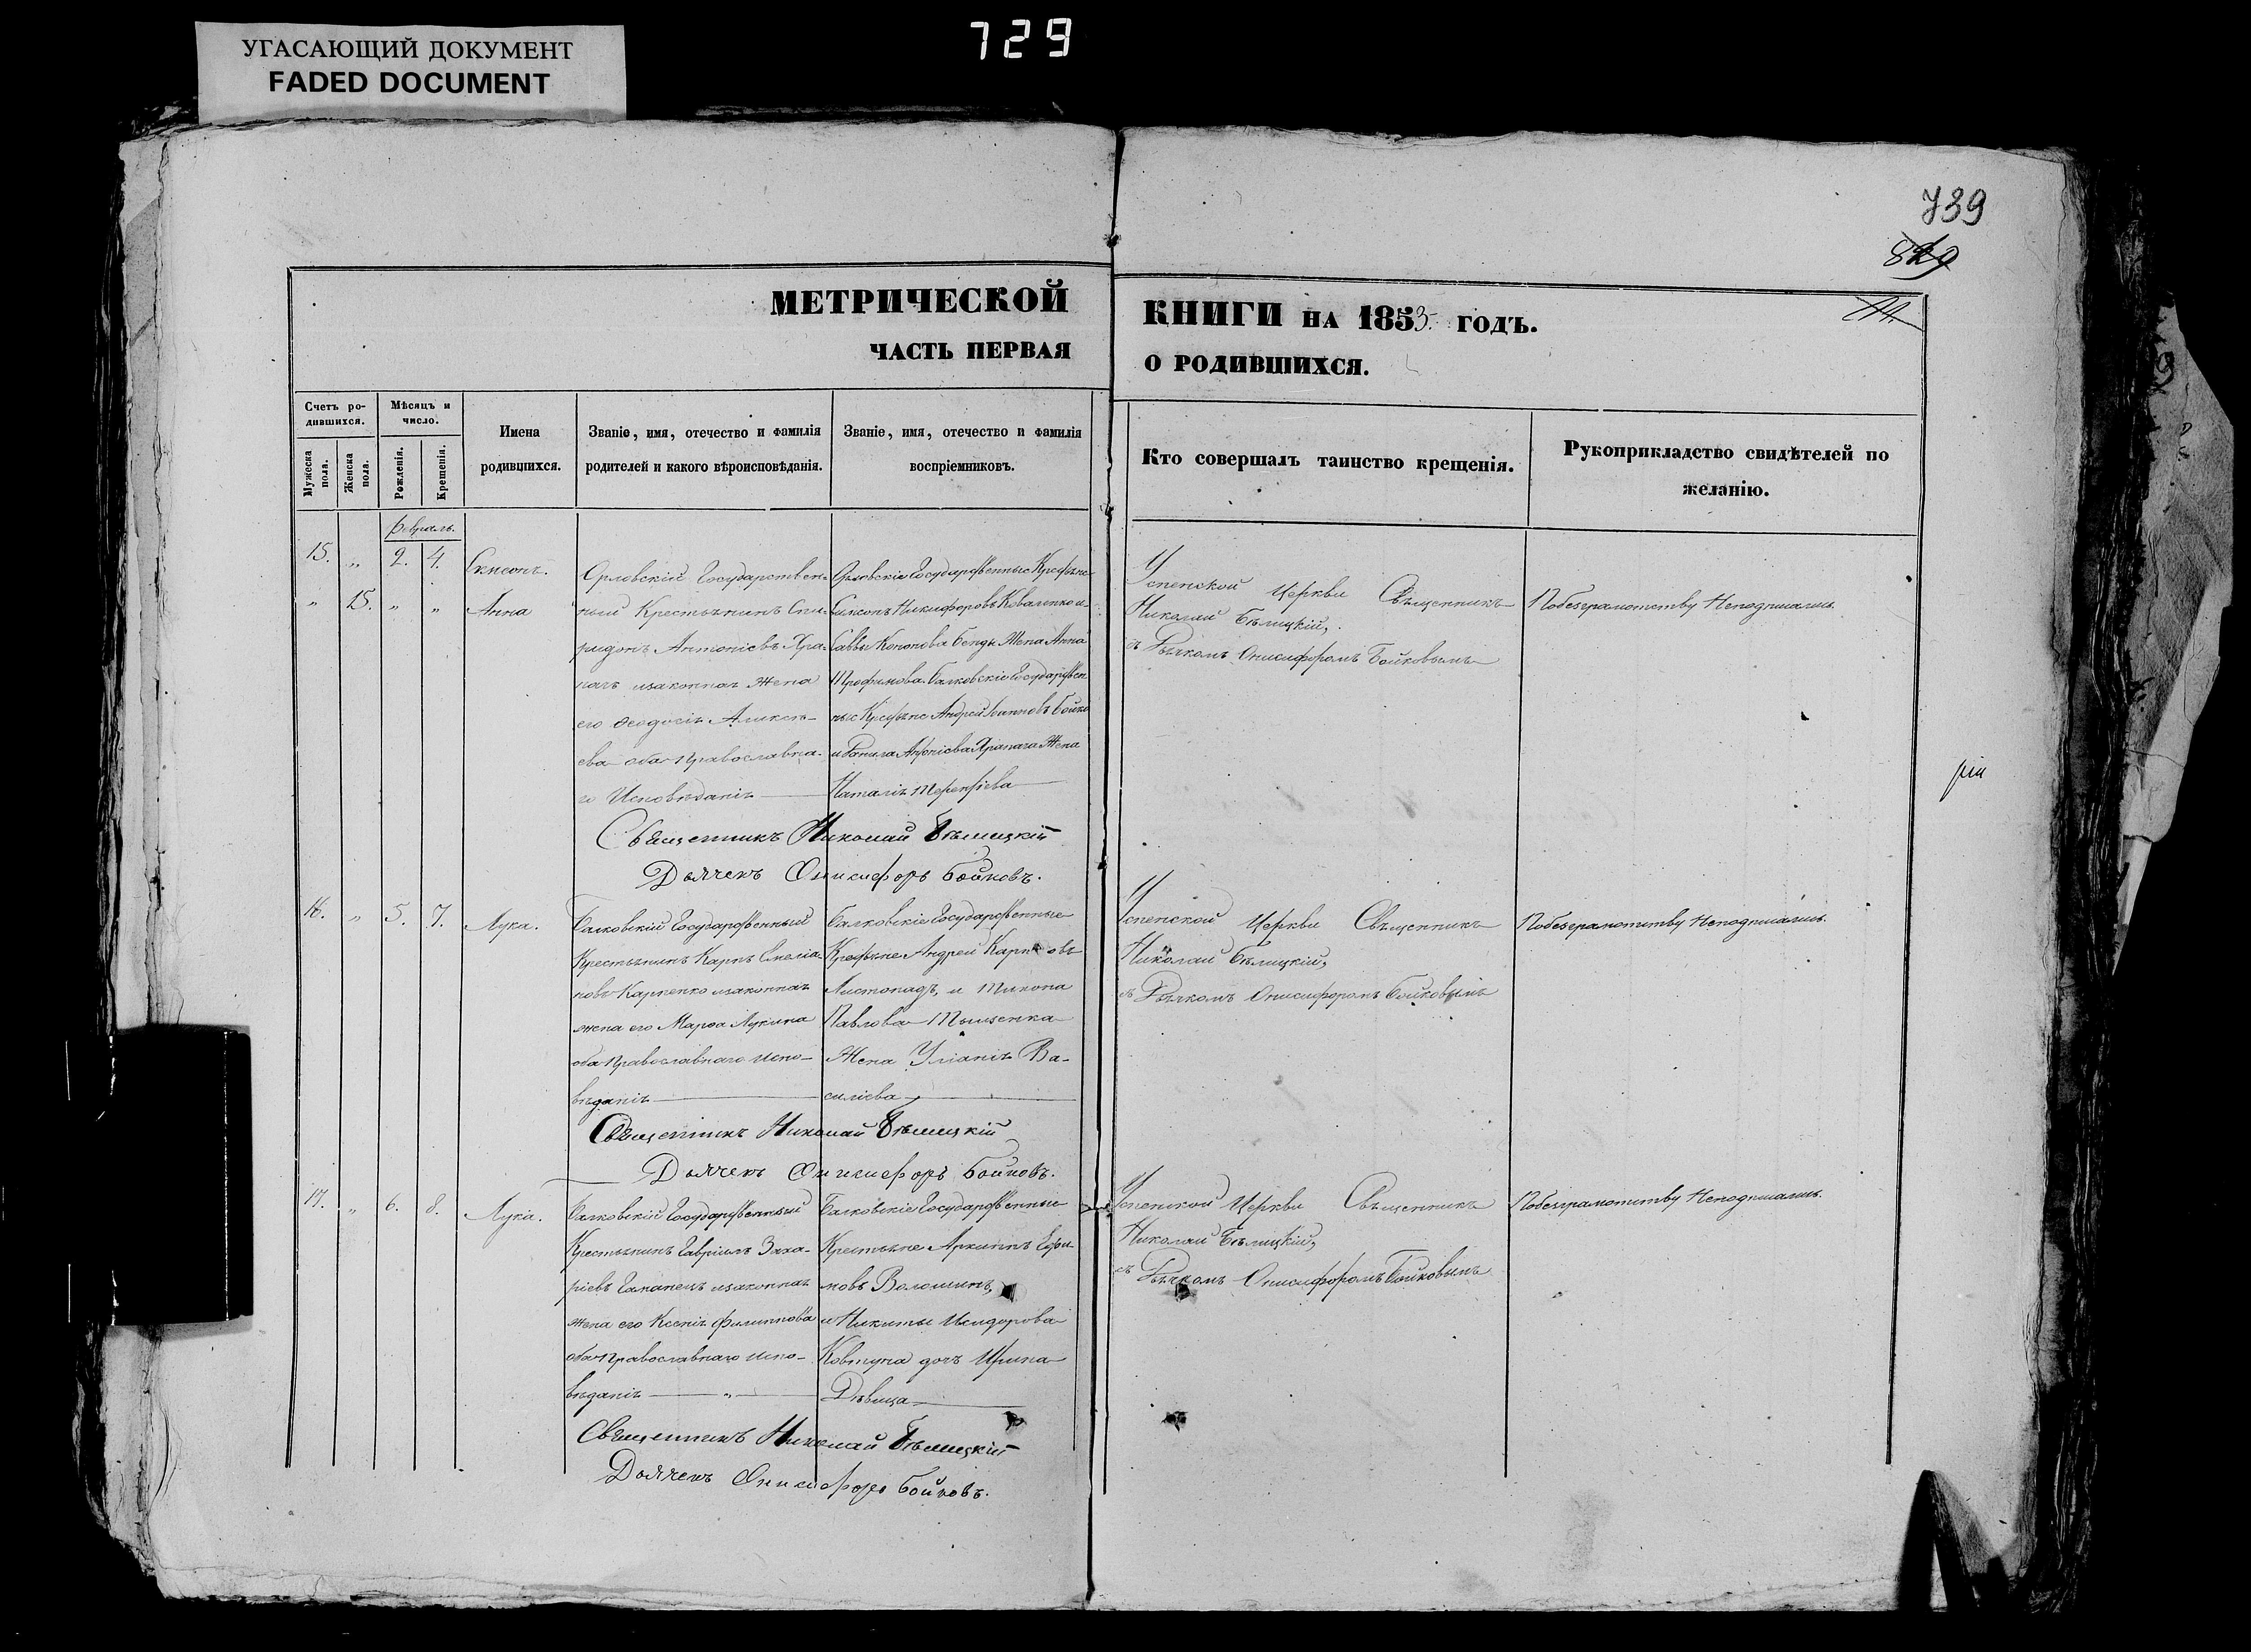 УГАСАЮЩИЙ ДОКУМЕНТ
FADED DOCUMENT
729
739
829
МЕТРИЧЕСКОЙ
ЧАСТЬ ПЕРВАЯ
КНИГИ НА 1853. ГОДЪ.
О РОДИВШИХСЯ.
Счетъ ро-
дившихся.
Мѣсяцъ и
число.
Мужеска
пола.
Женска
пола.
Рожденія.
Крещенія.
Имена
родившихся.
Званіе, имя, отечество и фамилія
родителей и какого вѣроисповѣданія.
Званіе, имя, отечество и фамилія
воспріемниковъ.
Кто совершалъ таинство крещенія.
Рукоприкладство свидѣтелей по
желанію.
Февраль.
15. „ 2. 4. Симеонъ.
„ 15. „ „ Анна
Орловскій Государствен-
ный Крестьянинъ Спи-
ридонъ Антоніевъ Хра-
пачъ и законная Жена
его Феодосія Алексѣ-
ева оба Православна-
го Исповѣданія
Орловскіе Государственные Крестьяне
Симеонъ Никифоровъ Коваленко и
Саввы Кононова Бенды Жена Анна
Трофимова. Балковскіе Государствен
ные Крестьяне Андрей Іоанновъ Бойко
и Данила Антоніева Храпача Жена
Наталія Терентіева
Успенской Церкви Священникъ
Николай Бѣлицкій,
съ Дьячкомъ Онисифоромъ Бойковымъ
По безграмотству Неподписались.
Священникъ Николай Бѣлицкій
Дьячекъ Онисифоръ Бойковъ.
16. „ 5. 7. Лука.
Балковскій Государственный
Крестьянинъ Карпъ Емеліа-
новъ Карпенко и законная
жена его Марфа Лукина
оба Православнаго Испо-
вѣданія
Балковскіе Государственные
Крестьяне Андрей Карповъ
Листопадъ, и Тихона
Павлова Тыщенка
Жена Уліанія Ва-
силіева
Успенской Церкви Священникъ
Николай Бѣлицкій,
съ Дьячкомъ Онисифоромъ Бойковымъ
По безграмотству Неподписались.
Священникъ Николай Бѣлицкій
Дьячекъ Онисифоръ Бойковъ.
17. „ 6. 8. Лука.
Балковскій Государственный
Крестьянинъ Гавріилъ Заха-
ріевъ Гаманецъ и законная
жена его Ксенія Филиппова
оба Православнаго Испо-
вѣданія „
Балковскіе Государственные
Крестьяне Архиппъ Ефи-
мовъ Волошинъ,
и Никиты Исидорова
Ковтуна дочь Ирина
Дѣвица
Успенской Церкви Священникъ
Николай Бѣлицкій,
съ Дьячкомъ Онисифоромъ Бойковымъ
По безграмотству Неподписались.
Священникъ Николай Бѣлицкій
Дьячекъ Онисифоръ Бойковъ.